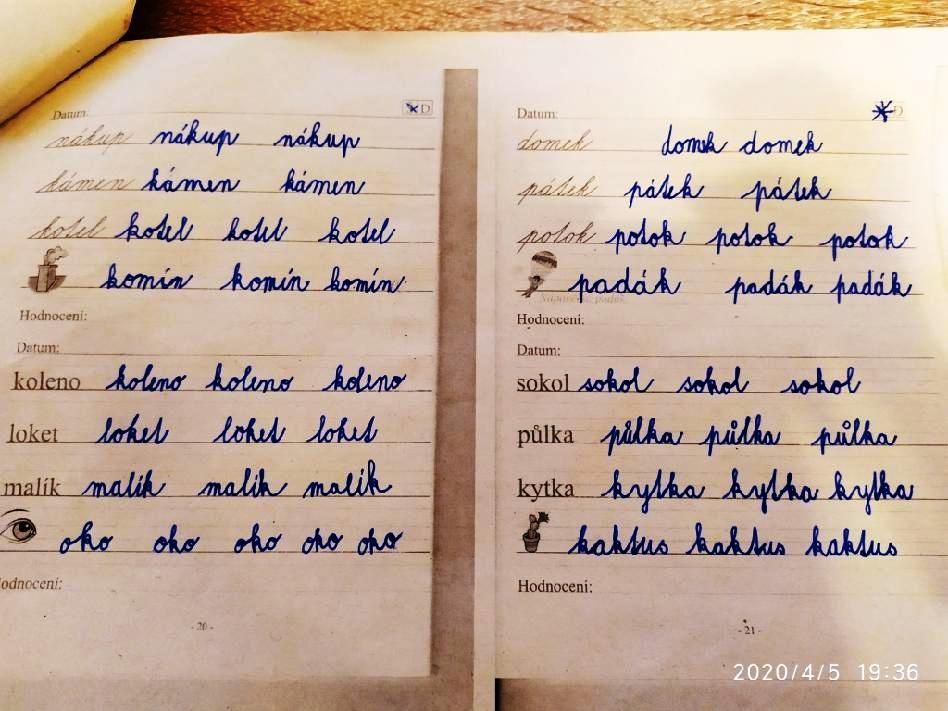 Datum: D
nákup nákup nákup
kámen kámen kámen
kotel kotel kotel kotel
komín komín komín
Hodnocení:
Datum:
koleno koleno koleno koleno
loket loket loket loket
malík malík malík malík
oko oko oko oko oko
Hodnocení:
- 20 -
Datum: D
domek domek domek
pátek pátek pátek
potok potok potok potok
padák padák padák
Hodnocení:
Datum:
sokol sokol sokol sokol
půlka půlka půlka půlka
kytka kytka kytka kytka
kaktus kaktus kaktus
Hodnocení:
- 21 -
2020/4/5 19:36